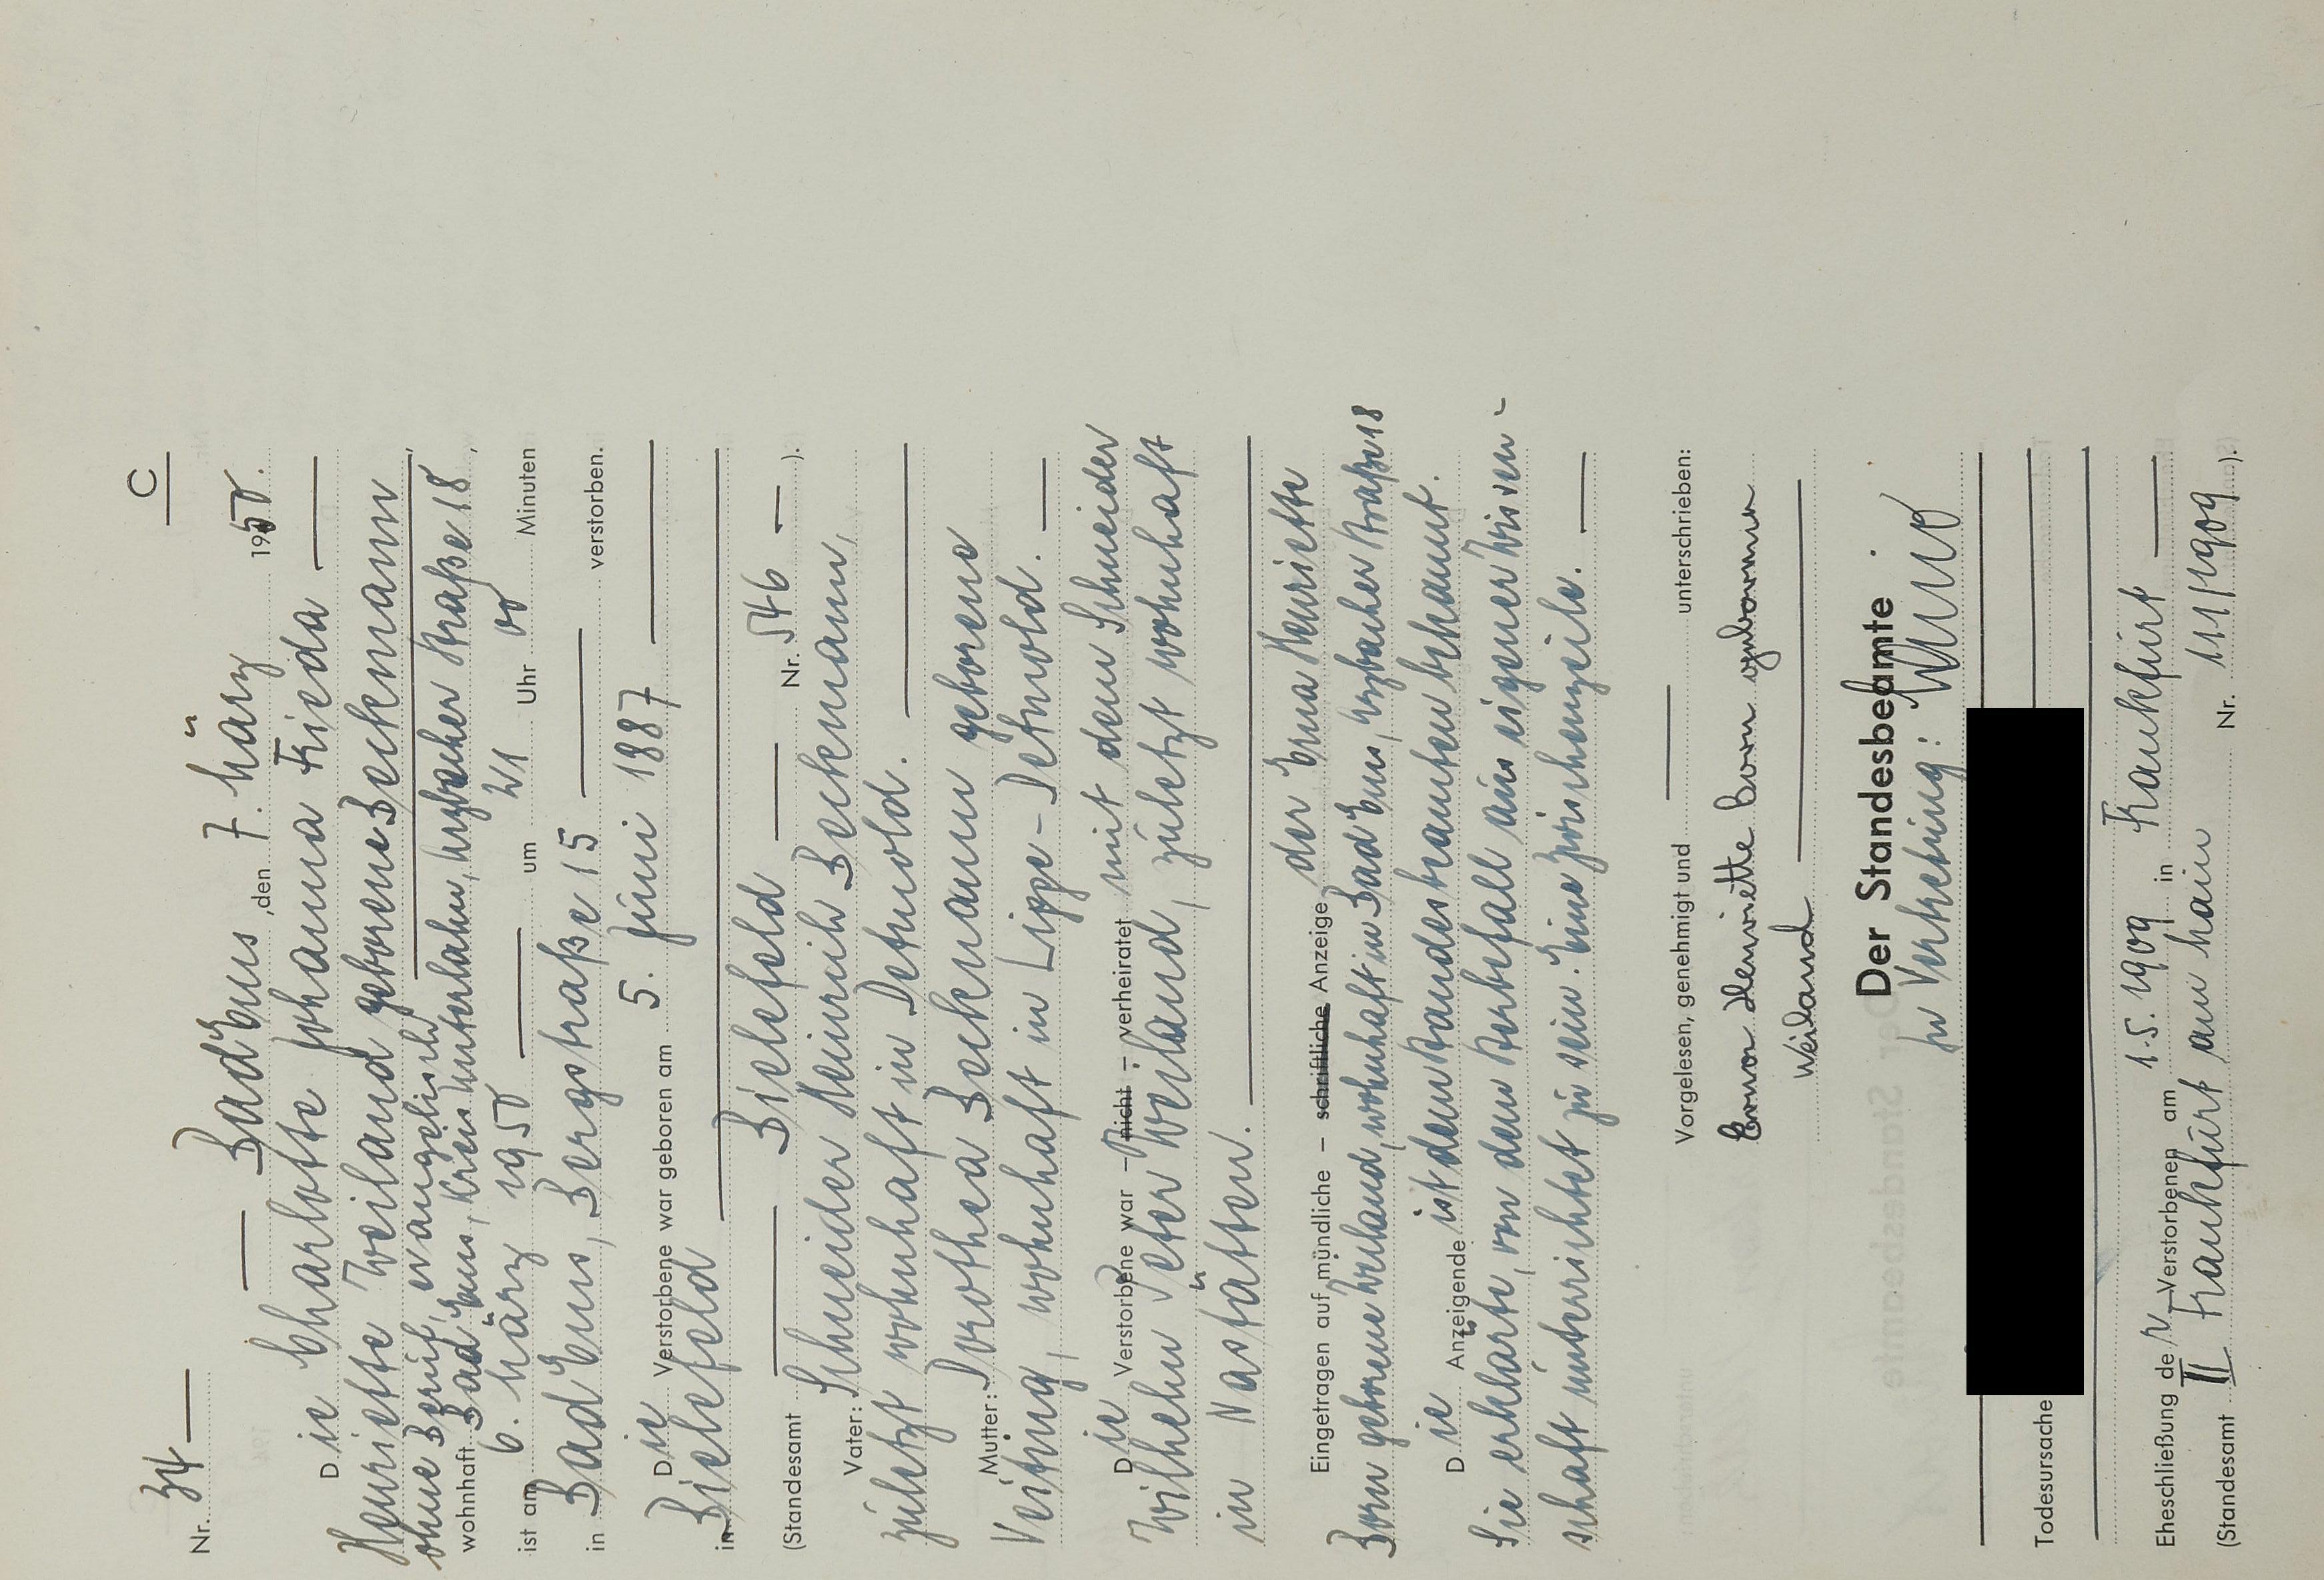 C
Nr. 34
Bad Ems, den 7. März 1950.
Die Charlotte Johanna Frieda
Henriette Weiland geborene Beckmann
ohne Beruf, evangelisch,
wohnhaft Bad Ems, Kreis Unterlahn, Arzbacher Straße 18,
ist am 6. März 1950 um 21 Uhr 00 Minuten
in Bad Ems, Bergstraße 15 verstorben.
Die Verstorbene war geboren am 5. Juni 1887
in Bielefeld
Bielefeld
(Standesamt Nr. 546 ).
Vater: Schneider Heinrich Beckmann,
zuletzt wohnhaft in Detmold.
Mutter: Dorothea Beckmann geborene
wohnhaft in Lippe-Detmold.
Die Verstorbene war – nicht – verheiratet mit dem Schneider
Wilhelm Peter Weiland, zuletzt wohnhaft
in Nastätten.
Eingetragen auf mündliche – schriftliche Anzeige der Erna Henriette
Born geborene Weiland, wohnhaft in Bad Ems, Arzbacher Straße 18
Die Anzeigende ist dem Standesbeamten bekannt.
Sie erklärte, von dem Sterbefall aus eigener Wissen-
schaft unterrichtet zu sein. Eine Zwischenzeile.
Vorgelesen, genehmigt und unterschrieben:
Erna Henriette Born geborene
Weiland
Der Standesbeamte
In Vertretung:
Todesursache
Eheschließung der Verstorbenen am 1.5.1909 in Frankfurt
(Standesamt II Frankfurt am Main Nr. 111/1909 ).